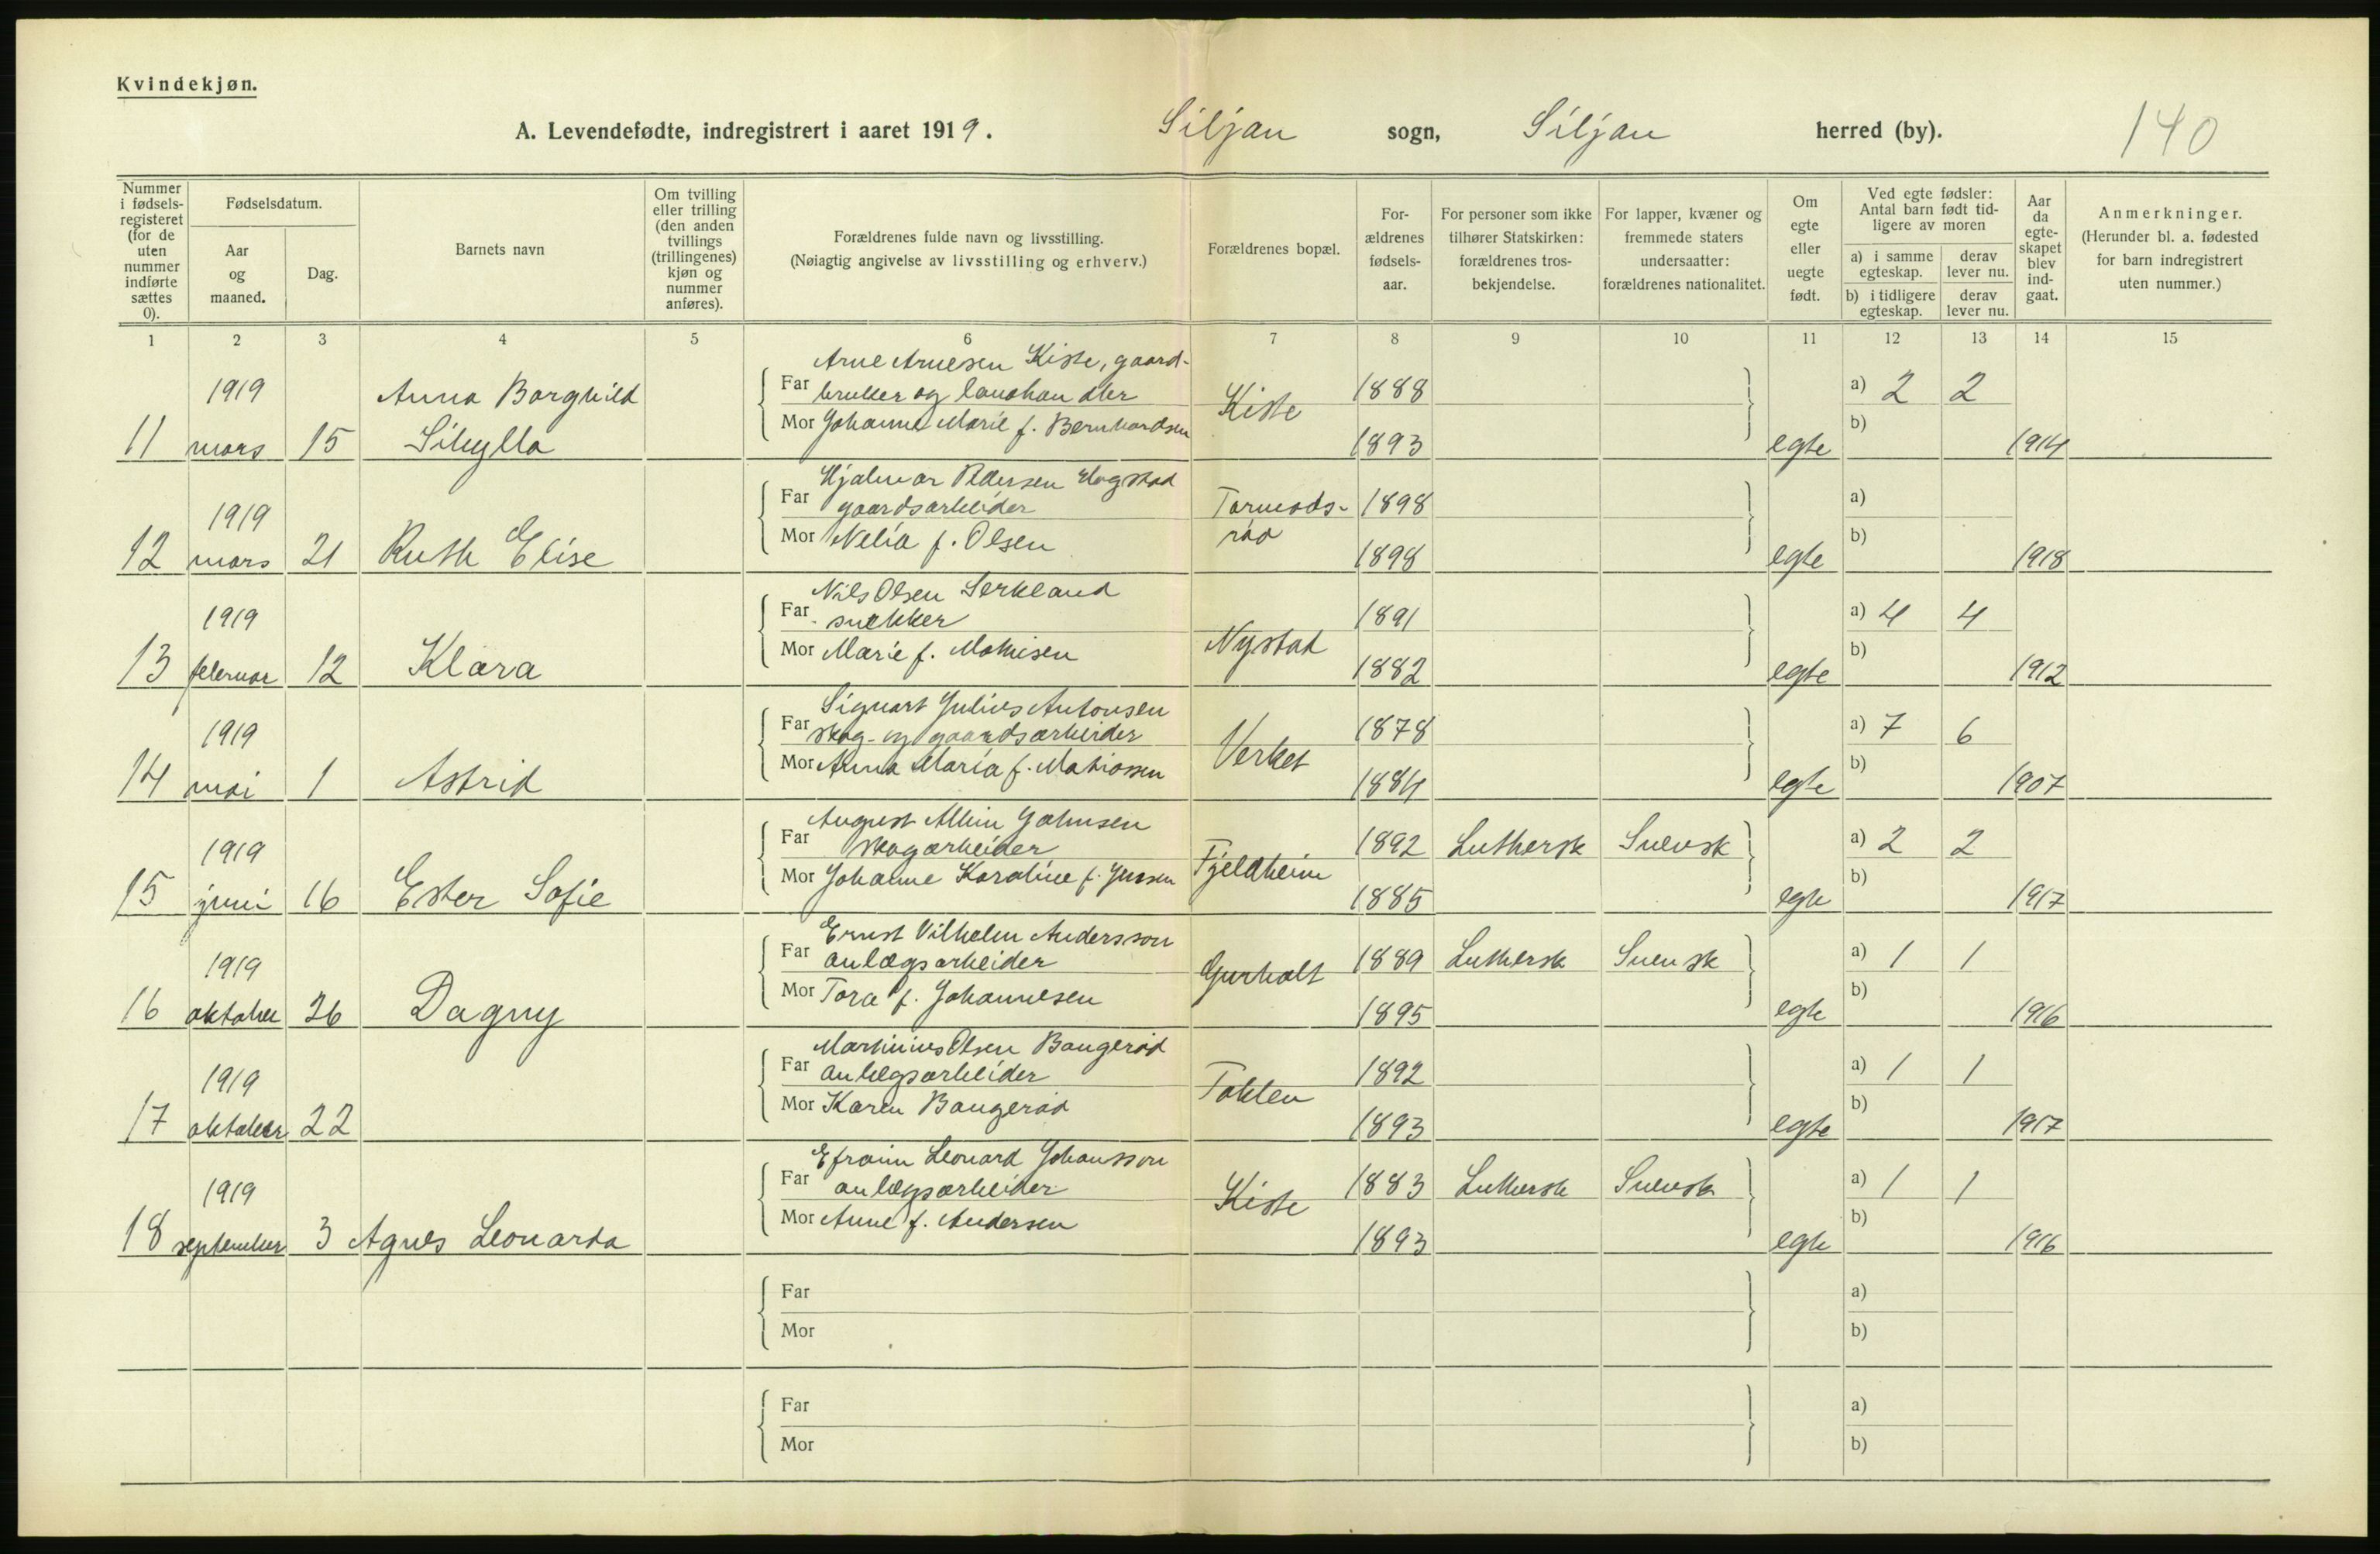 Kvindekjøn.
A. Levendefødte, indregistrert i aaret 1919. Siljan sogn, Siljan herred (by). 140
Nummer i fødsels-registeret (for de uten nummer indførte sættes 0).
Fødselsdatum.
Aar og maaned.
Dag.
Barnets navn
Om tvilling eller trilling (den anden tvillings (trillingenes) kjøn og nummer anføres).
Forældrenes fulde navn og livsstilling.
(Nøiagtig angivelse av livsstilling og erhverv.)
Forældrenes bopæl.
For-ældrenes fødsels-aar.
For personer som ikke tilhører Statskirken: forældrenes tros-bekjendelse.
For lapper, kvæner og fremmede staters undersaatter: forældrenes nationalitet.
Om egte eller uegte født.
Ved egte fødsler: Antal barn født tid-ligere av moren
a) i samme egteskap.
derav lever nu.
b) i tidligere egteskap.
derav lever nu.
Aar da egte-skapet blev ind-gaat.
Anmerkninger.
(Herunder bl. a. fødested for barn indregistrert uten nummer.)
1 2 3 4 5 6 7 8 9 10 11 12 13 14 15
Arne Arnesen Kiste, gaard-
1919 Anna Borghild Far bruker og lausthandler Kiste 1888 a) 2 2
11 mars 15 Sibylla Mor Johanne Marie f. Bernhardsen 1893 egte b) 1914
Hjalmar Pedersen Hogstad
1919 Far gaardsarbeider Tormods- 1898 a)
12 mars 21 Ruth Elise Mor Nelia f. Olsen rød 1898 egte b) 1918
Nils Olsen Serkland
1919 Far snekker 1891 a) 4 4
13 februar 12 Klara Mor Marie f. Mathisen Nystad 1882 egte b) 1912
Sigvart Julius Antonsen
1919 Far skog- og gaardsarbeider Verket 1878 a) 7 6
14 mai 1 Astrid Mor Anna Maria f. Mathiassen 1884 egte b) 1907
August Albin Johnsen
1919 Far skogarbeider 1892 Luthersk Svensk a) 2 2
15 juni 16 Ester Sofie Mor Johanne Karoline f. Jensen Fjeldheim 1885 egte b) 1917
Ernst Vilhelm Andersson
1919 Far anlægsarbeider Gurholt 1889 Luthersk Svensk a) 1 1
16 oktober 26 Dagny Mor Tora f. Johannesen 1895 egte b) 1916
Martinius Olsen Baugerød
1919 Far anlegsarbeider 1892 a) 1 1
17 oktober 22 Mor Karen Baugerød Toklen 1893 egte b) 1917
Efraim Leonard Johansson
1919 Far anlægsarbeider Kiste 1883 Luthersk Svensk a) 1 1
18 september 3 Agnes Leonarda Mor Anne f. Andersen 1893 egte b) 1916
Far a)
Mor b)
Far a)
Mor b)